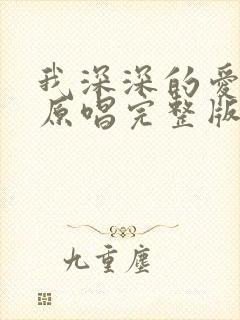 我深深的爱
原唱完整版
九重尘